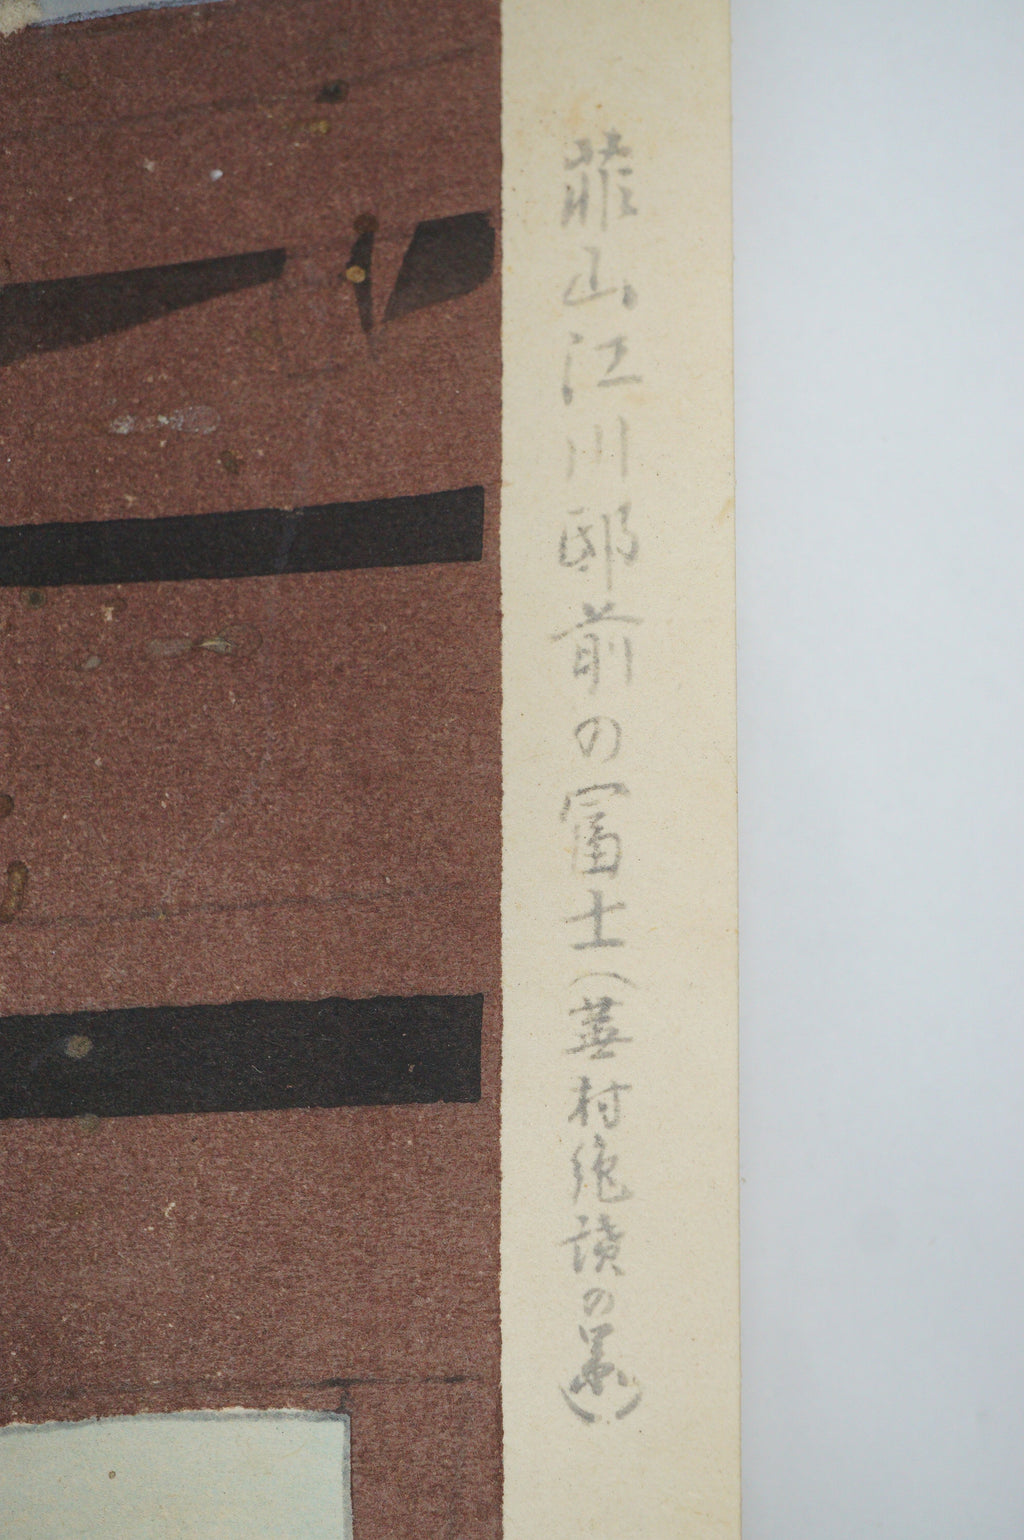 韮山江川邸前の富士(蕪村絶讃の景)